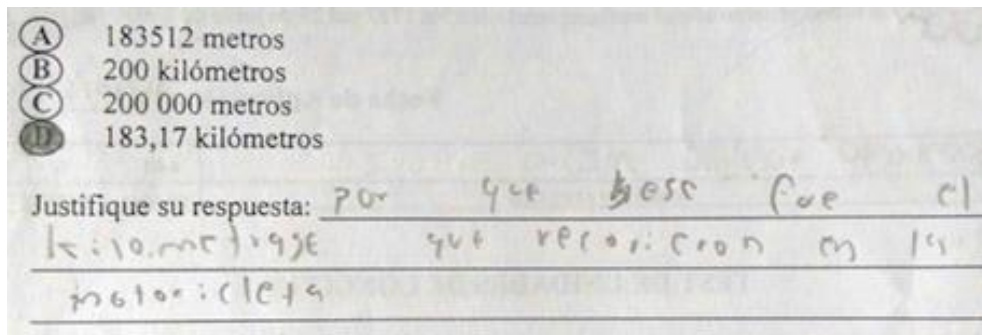 A 183512 metros
B 200 kilómetros
C 200 000 metros
D 183,17 kilómetros
Justifique su respuesta: por que ese fue el
kilometrage que recorricron en la
motoricleta